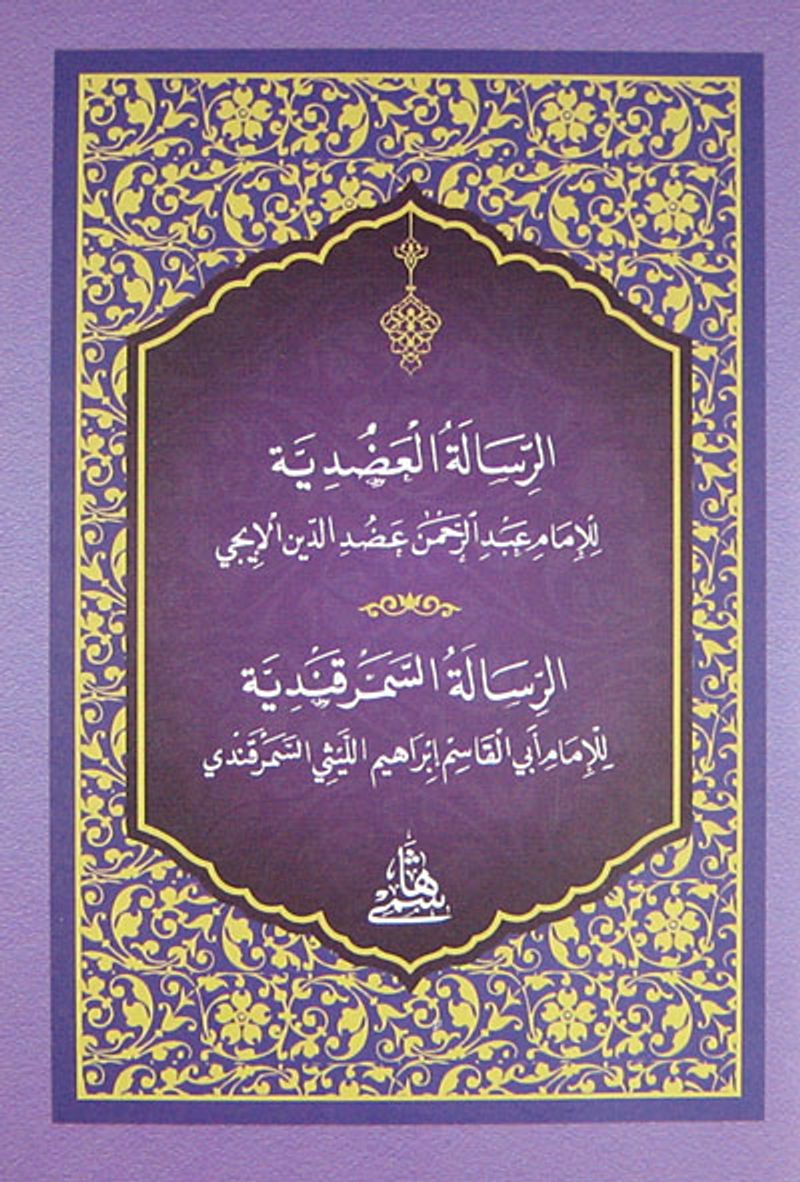 الرِّسَالَةُ الْعَضُدِيَّة
لِلْإِمَامِ عَبْدِ الرَّحْمَن عَضُدِ الدِّين الْإِيجِي
الرِّسَالَةُ السَّمَرْقَنْدِيَّة
لِلْإِمَامِ أَبِي الْقَاسِمْ إِبْرَاهِيم اللَّيْثِي السَّمَرْقَنْدِي
هاشمي